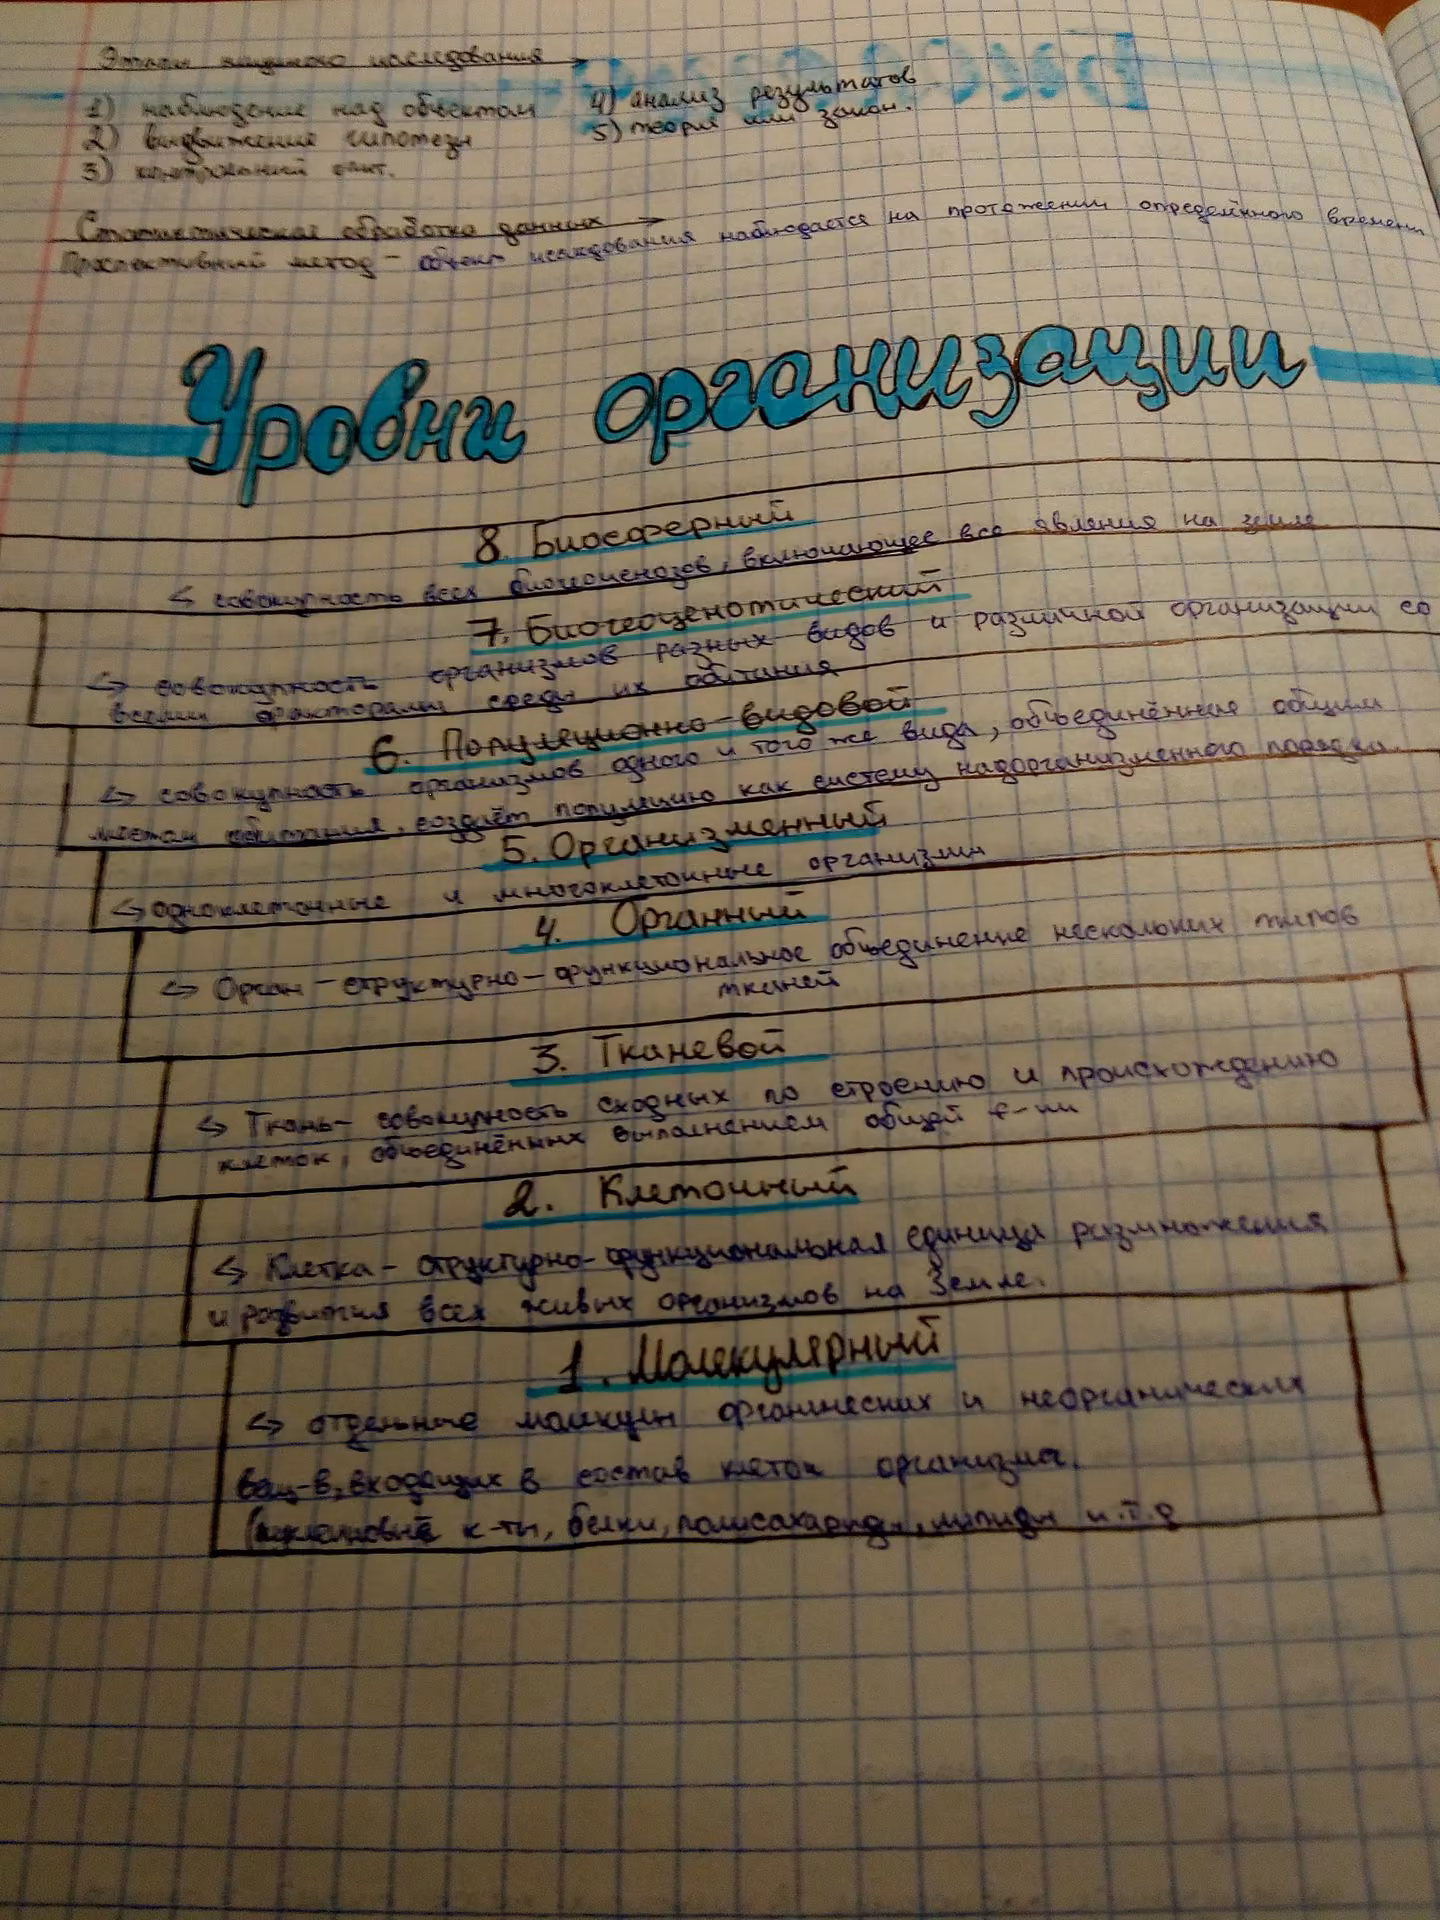 Этапы научного исследования →
1) наблюдение над объектом
2) выдвижение гипотезы
3) контрольный опыт.
4) анализ результатов
5) теория или закон.
Статистическая обработка данных →
Проспективный метод - объект исследования наблюдается на протяжении определённого времени
Уровни организации
8. Биосферный
↳ совокупность всех биогеоценозов, включающее все явления на земле
7. Биогеоценотический
↳ совокупность организмов разных видов и различной организации со
всеми факторами среды их обитания
6. Популяционно-видовой
↳ совокупность организмов одного и того же вида, объединённые общим
местом обитания, создаёт популяцию как систему надорганизменного порядка.
5. Организменный
↳ одноклеточные и многоклеточные организмы
4. Органный
↳ Орган - структурно-функциональное объединение нескольких типов
тканей
3. Тканевой
↳ Ткань - совокупность сходных по строению и происхождению
клеток, объединённых выполнением общей ф-ии
2. Клеточный
↳ Клетка - структурно-функциональная единица размножения
и развития всех живых организмов на Земле.
1. Молекулярный
↳ отдельные молекулы органических и неорганических
вещ-в, входящих в состав клеток организма.
(нуклеиновые к-ты, белки, полисахариды, липиды и.т.д